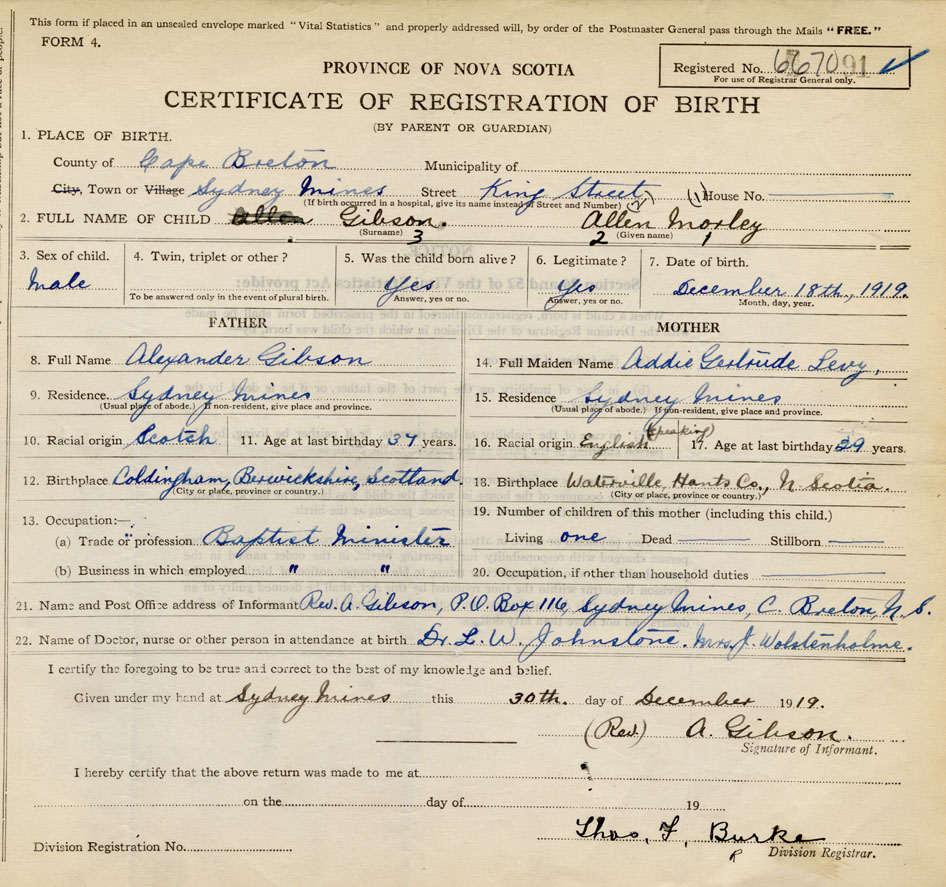 This form if placed in an unsealed envelope marked "Vital Statistics" and properly addressed will, by order of the Postmaster General pass through the Mails "FREE."
FORM 4.
Registered No. 667091
For use of Registrar General only.
PROVINCE OF NOVA SCOTIA
CERTIFICATE OF REGISTRATION OF BIRTH
(BY PARENT OR GUARDIAN)
1. PLACE OF BIRTH.
County of Cape Breton Municipality of
City, Town or Village Sydney Mines Street King Street (2) (1) House No.
(If birth occurred in a hospital, give its name instead of Street and Number)
2. FULL NAME OF CHILD Allen Gibson. Allen Morley
(Surname) 3 2 (Given name) 1
3. Sex of child. 4. Twin, triplet or other? 5. Was the child born alive? 6. Legitimate? 7. Date of birth.
Male Yes Yes December 18th, 1919.
To be answered only in the event of plural birth. Answer, yes or no. Answer, yes or no. Month, day, year.
FATHER MOTHER
8. Full Name Alexander Gibson 14. Full Maiden Name Addie Gertrude Levy,
9. Residence Sydney Mines 15. Residence Sydney Mines
(Usual place of abode.) If non-resident, give place and province. (Usual place of abode.) If non-resident, give place and province.
10. Racial origin Scotch 11. Age at last birthday 37 years. 16. Racial origin English (speaking) 17. Age at last birthday 39 years.
12. Birthplace Coldingham, Berwickshire, Scotland. 18. Birthplace Waterville, Hants Co., N. Scotia.
(City or place, province or country.) (City or place, province or country.)
13. Occupation:— 19. Number of children of this mother (including this child.)
(a) Trade or profession Baptist Minister Living one Dead Stillborn
(b) Business in which employed " " 20. Occupation, if other than household duties
21. Name and Post Office address of Informant Rev. A. Gibson, P.O. Box 116, Sydney Mines, C. Breton, N.S.
22. Name of Doctor, nurse or other person in attendance at birth Dr. L. W. Johnstone. Mrs. J. Wolstenholme.
I certify the foregoing to be true and correct to the best of my knowledge and belief.
Given under my hand at Sydney Mines this 30th. day of December 1919.
(Rev.) A. Gibson.
Signature of Informant.
I hereby certify that the above return was made to me at
on the day of 19
Thos. F. Burke
Division Registration No. Division Registrar.